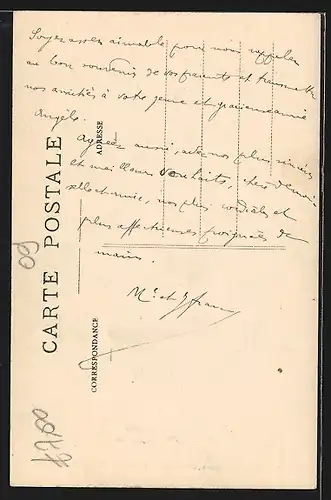 Soyez assez aimable pour nous rappeler
au bon souvenir de vos parents et transmettre
nos amitiés à votre jeune et gracieuse amie
Angèle.
Agréez aussi, avec nos plus sincères
et meilleurs souhaits, cher
et amie, nos plus cordiales et
plus affectueuses poignées de
mains.
M. et J.
CARTE POSTALE
ADRESSE
CORRESPONDANCE
09